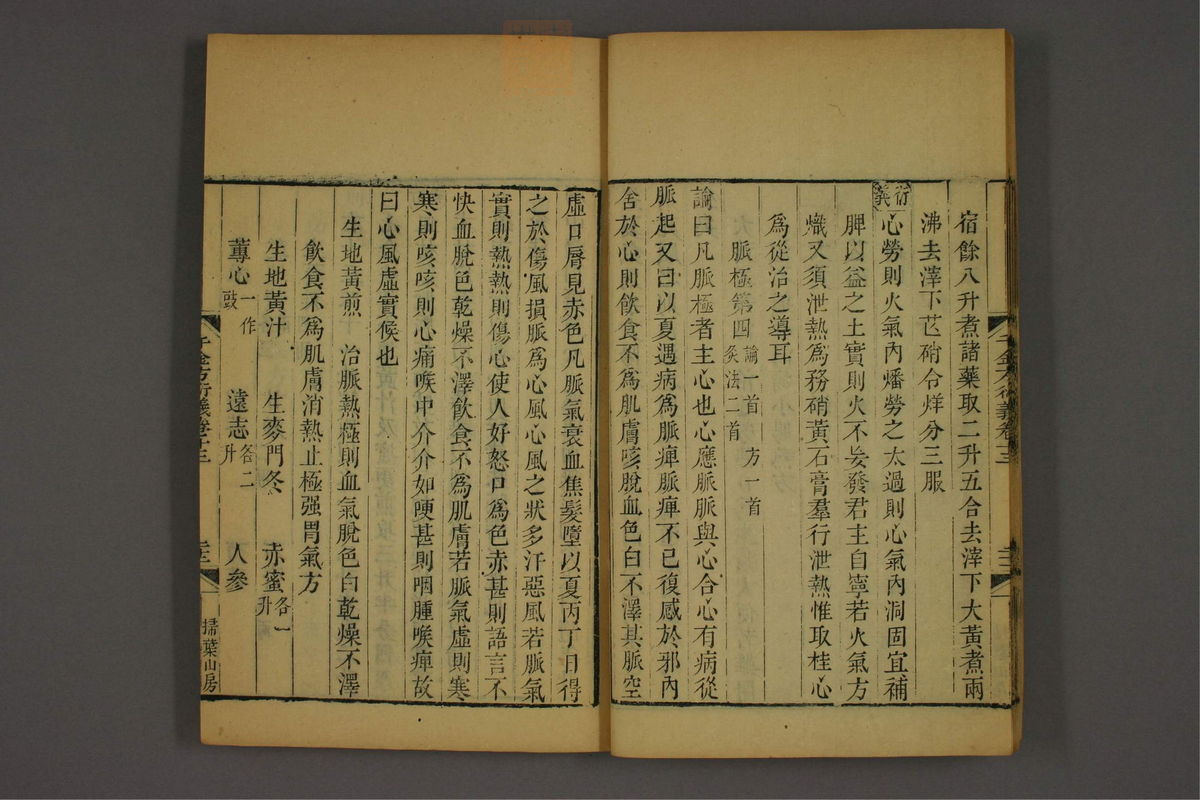 宿餘八升煮諸藥取二升五合去滓下大黃煮兩
沸去滓下芒硝令烊分三服
衍義
心勞則火氣內燔勞之太過則心氣內洞固宜補
脾以益之土實則火不妄發君主自寧若火氣方
熾又須泄熱爲務硝黃石膏羣行泄熱惟取桂心
爲從治之導耳
脈極第四 論一首 方一首 灸法二首
論曰凡脈極者主心也心應脈脈與心合心有病從
脈起又曰以夏遇病爲脈痺脈痺不已復感於邪內
舍於心則飲食不爲肌膚咳脫血色白不澤其脈空
虛口脣見赤色凡脈氣衰血焦髮墮以夏丙丁日得
之於傷風損脈爲心風心風之狀多汗惡風若脈氣
實則熱熱則傷心使人好怒口爲色赤甚則語言不
快血脫色乾燥不澤飲食不爲肌膚若脈氣虛則寒
寒則咳咳則心痛喉中介介如哽甚則咽腫喉痺故
曰心風虛實候也
生地黃煎 治脈熱極則血氣脫色白乾燥不澤
飲食不爲肌膚消熱止極强胃氣方
生地黃汁 生麥門冬 赤蜜各一升
蓴心一作豉 遠志各二升 人參
千金方衍義卷十三
掃葉山房